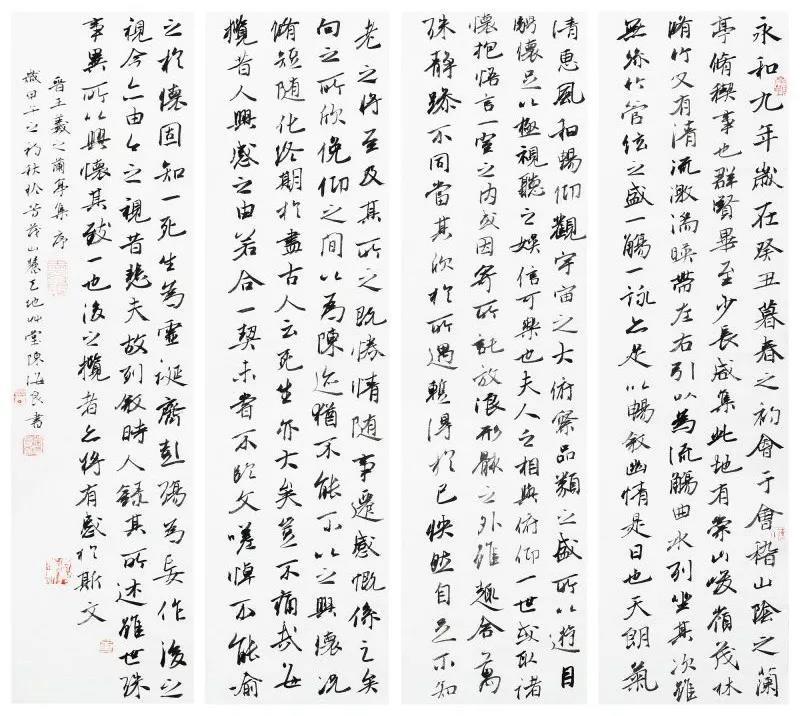 永和九年歲在癸丑暮春之初會于會稽山陰之蘭
亭脩禊事也群賢畢至少長咸集此地有崇山峻嶺茂林
脩竹又有清流激湍暎帶左右引以為流觴曲水列坐其次雖
無絲竹管絃之盛一觴一詠亦足以暢敘幽情是日也天朗氣
清惠風和暢仰觀宇宙之大俯察品類之盛所以遊目
騁懷足以極視聽之娛信可樂也夫人之相與俯仰一世或取諸
懷抱悟言一室之內或因寄所託放浪形骸之外雖趣舍萬
殊靜躁不同當其欣於所遇暫得於己怏然自足不知
老之將至及其所之既惓情隨事遷感慨係之矣
向之所欣俛仰之間以為陳迹猶不能不以之興懷況
脩短隨化終期於盡古人云死生亦大矣豈不痛哉每
攬昔人興感之由若合一契未嘗不臨文嗟悼不能喻
之於懷固知一死生為虛誕齊彭殤為妄作後之
視今亦由今之視昔悲夫故列敘時人錄其所述雖世殊
事異所以興懷其致一也後之攬者亦將有感於斯文
晉王羲之蘭亭集序
歲甲午之初秋於芳茂山麓地堂陳海良書